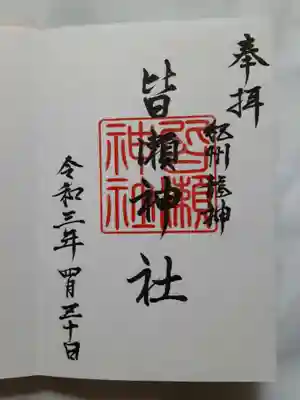 奉拝
紀州龍神
皆瀬神社
皆瀬
神社
令和三年 四月三十日